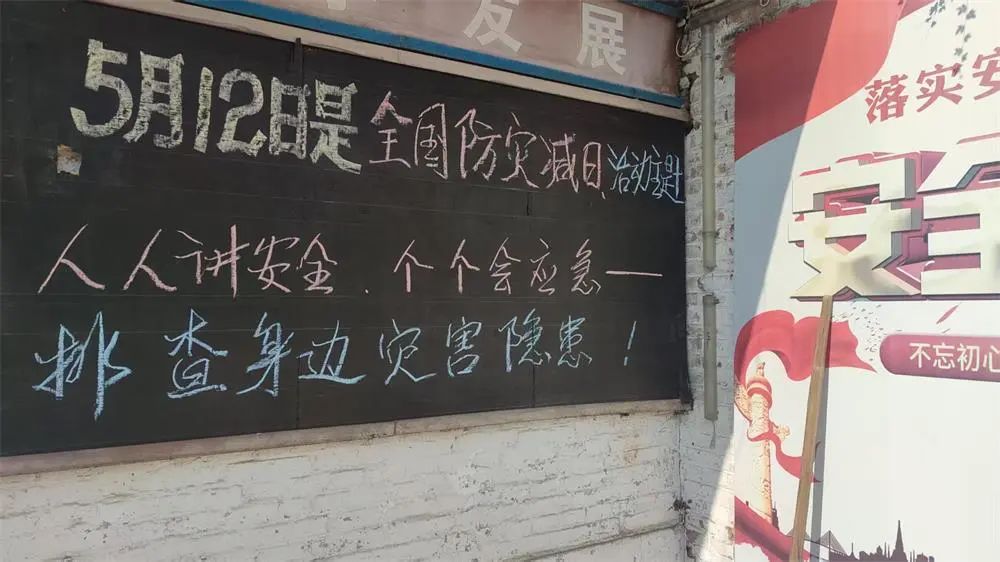 发展
5月12日是全国防灾减日,活动主题
人人讲安全、个个会应急一
排查身边灾害隐患！
落实安
安全
不忘初心